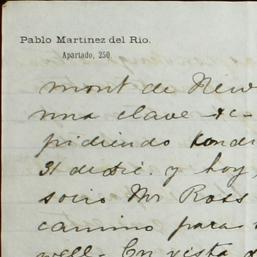 Pablo Martinez del Rio.
Apartado, 250
mont de New
una clave &c-
pidiendo
31 de dic. y hoy
socio Mr Ross
camino para
well. En vista